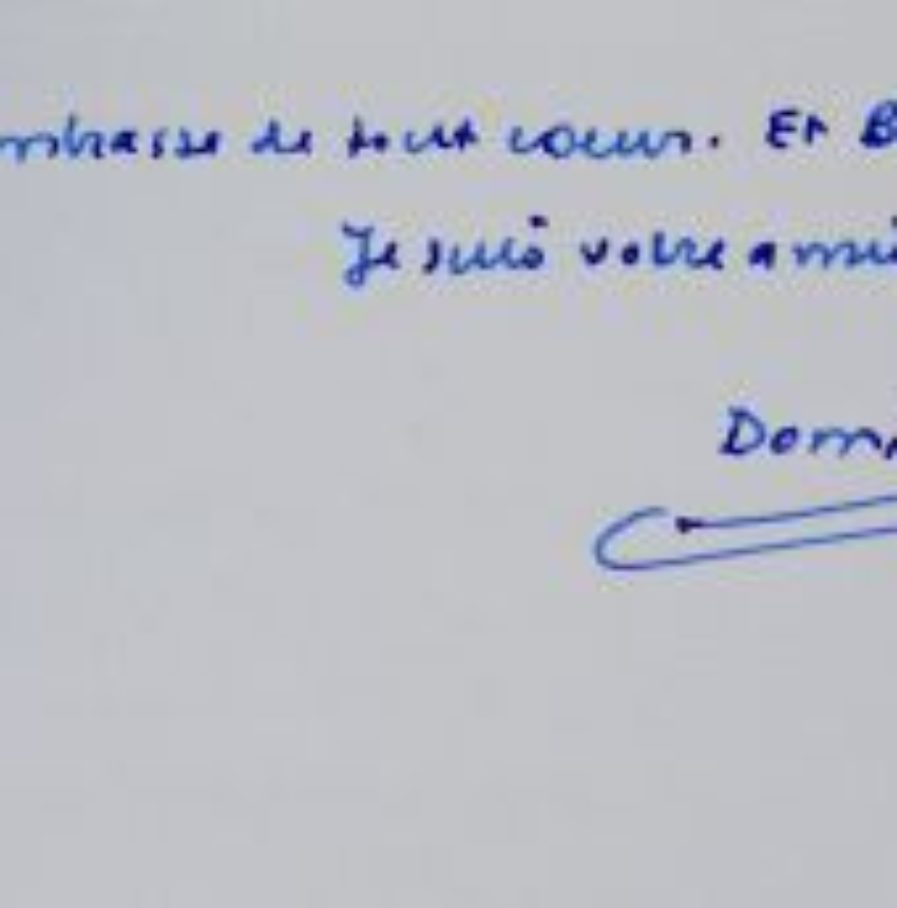 mbrasse de tout coeur. Et B
Je suis votre amie
Domi